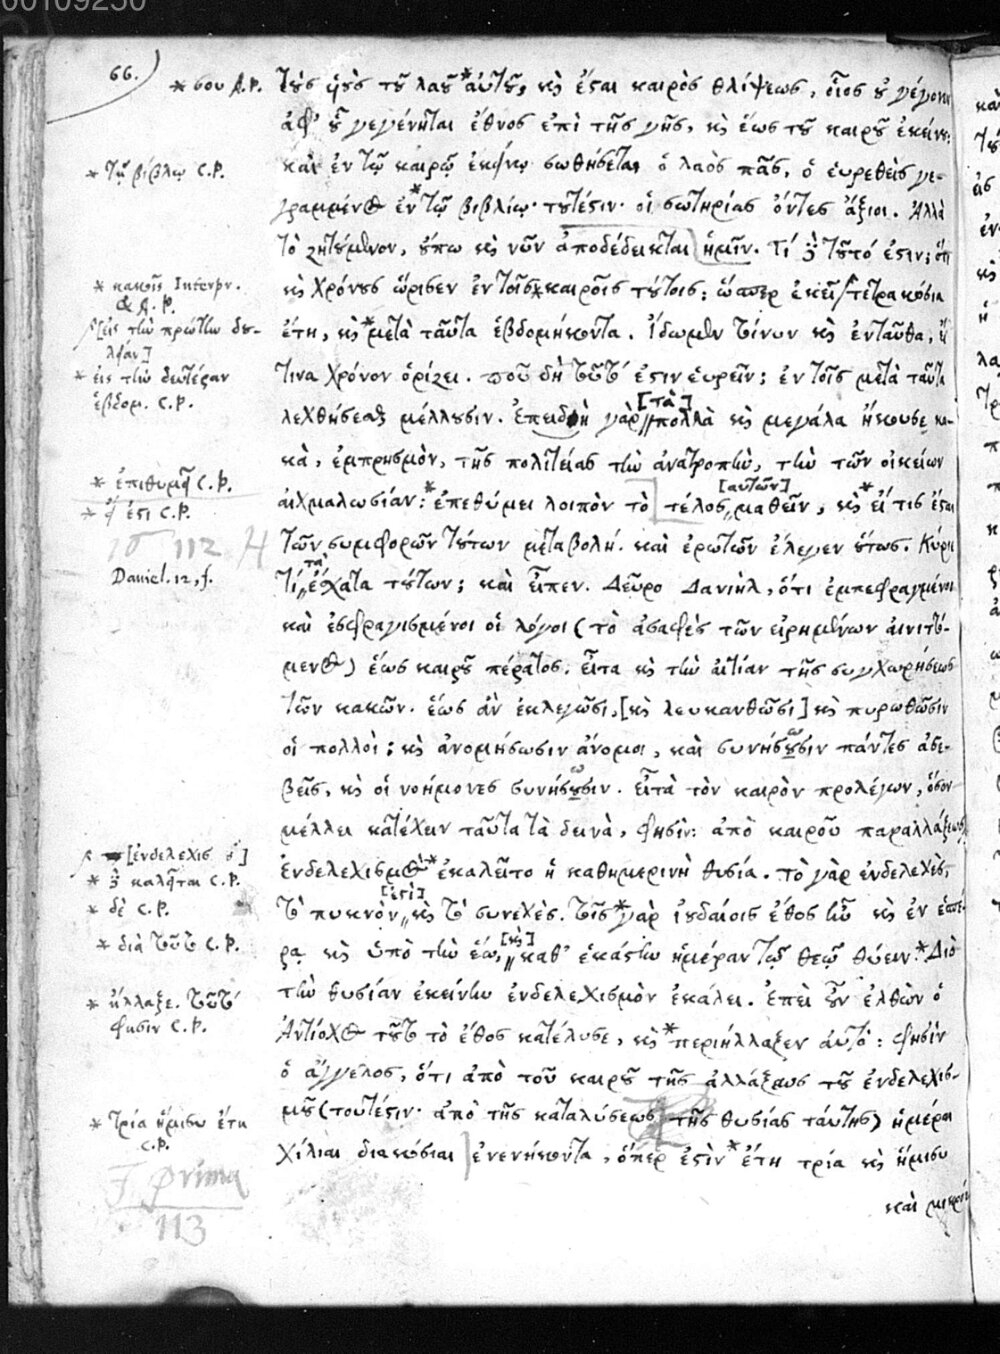 00109250
66.)
* σου A.P. τοὺς υἱοὺς τοῦ λαοῦ * αὐτοῦ, καὶ ἔσται καιρὸς θλίψεως, οἷος οὐ γέγονεν
ἀφ' οὗ γεγένηται ἔθνος ἐπὶ τῆς γῆς, καὶ ἕως τοῦ καιροῦ ἐκείνου.
* τῇ βίβλῳ C.P. καὶ ἐν τῷ καιρῷ ἐκείνῳ σωθήσεται ὁ λαὸς πᾶς, ὁ εὑρεθεὶς γε-
γραμμένος ἐν * τῷ βιβλίῳ· τουτέστιν· οἱ σωτηρίας ὄντες ἄξιοι. Ἀλλὰ
τὸ ζητούμενον, οὔπω καὶ νῦν ἀποδέδεικται ἡμῖν. Τί δὲ τοῦτό ἐστιν; ὅτι
* κακοῖς Interpr. & A.P. καὶ χρόνους ὥρισεν ἐν τοῖς * καιροῖς τούτοις; ὥσπερ ἐκεῖ τετρακόσια
[εἰς τὴν πρώτην δου-
λείαν] ἔτη, καὶ * μετὰ ταῦτα ἑβδομήκοντα. Ἴδωμεν τοίνυν καὶ ἐνταῦθα, εἴ
* εἰς τὴν δευτέραν τινα χρόνον ὁρίζει. ποῦ δὴ τοῦτ' ἔστιν εὑρεῖν; ἐν τοῖς μετὰ ταῦτα
ἑβδομ. C.P. λεχθήσεσθαι μέλλουσιν. Ἐπειδὴ γὰρ [τὰ] πολλὰ καὶ μεγάλα ἤκουσε κα-
κὰ, ἐμπρησμὸν, τῆς πολιτείας τὴν ἀνατροπὴν, τὴν τῶν οἰκείων
* ἐπιθυμεῖ C.P. αἰχμαλωσίαν: * ἐπεθύμει λοιπὸν τὸ τέλος [αὐτῶν] μαθεῖν, καὶ * εἴ τις ἔσται
* ἐστι C.P. τῶν συμφορῶν τούτων μεταβολή. καὶ ἐρωτῶν ἔλεγεν οὕτως. Κύριε
112
Daniel. 12, f. τί τὰ ἔσχατα τούτων; καὶ εἶπεν. Δεῦρο Δανιὴλ, ὅτι ἐμπεφραγμένοι
καὶ ἐσφραγισμένοι οἱ λόγοι (τὸ ἀσαφὲς τῶν εἰρημένων αἰνιττό-
μενος) ἕως καιροῦ πέρατος. εἶτα καὶ τὴν αἰτίαν τῆς συγχωρήσεως
τῶν κακῶν. ἕως ἂν ἐκλεγῶσι, [καὶ λευκανθῶσι] καὶ πυρωθῶσιν
οἱ πολλοί; καὶ ἀνομήσωσιν ἄνομοι, καὶ συνήσουσιν πάντες ἀσε-
βεῖς, καὶ οἱ νοήμονες συνήσουσιν. εἶτα τὸν καιρὸν προλέγων, ὅσον
μέλλει κατέχειν ταῦτα τὰ δεινὰ, φησίν: ἀπὸ καιροῦ παραλλάξεως
[ἐνδελεχισμοῦ]
* δὲ καλεῖται C.P. ἐνδελεχισμὸς * ἐκαλεῖτο ἡ καθημερινὴ θυσία. τὸ γὰρ ἐνδελεχὲς,
* δὲ C.P. τὸ πυκνόν [ἐστὶ] καὶ τὸ συνεχές. τοῖς * γὰρ ἰουδαίοις ἔθος ἦν καὶ ἐν ἑσπέ-
* διὰ τοῦτο C.P. ρᾳ καὶ ὑπὸ τὴν ἕω, [καὶ] καθ' ἑκάστην ἡμέραν τῷ θεῷ θύειν. * Διὸ
* ἤλλαξε. τοῦτ' τὴν θυσίαν ἐκείνην ἐνδελεχισμὸν ἐκάλει. Ἐπεὶ οὖν ἐλθὼν ὁ
φησιν C.P. Ἀντίοχος τοῦτο τὸ ἔθος κατέλυσε, καὶ * περιήλλαξεν αὐτό: φησίν
ὁ ἄγγελος, ὅτι ἀπὸ τοῦ καιροῦ τῆς ἀλλάξεως τοῦ ἐνδελεχισ-
μοῦ (τουτέστιν· ἀπὸ τῆς καταλύσεως τῆς θυσίας ταύτης) ἡμέραι
* τρία ἥμισυ ἔτη
C.P. χίλιαι διακόσιαι ἐνενήκοντα, ὅπερ ἐστὶν * ἔτη τρία καὶ ἥμισυ
καὶ μικρόν
F prima
113